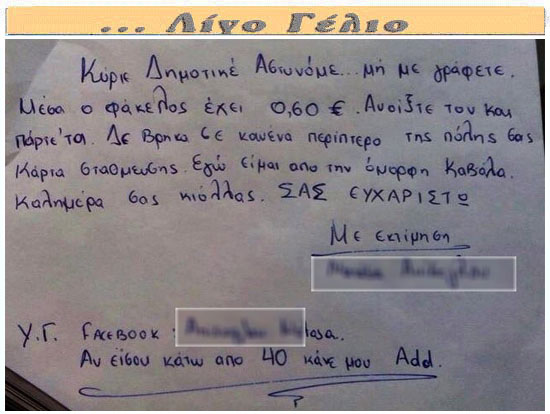 ... Λίγο Γέλιο
Κύριε Δημοτικέ Αστυνόμε... μή με γράφετε.
Μέσα ο φάκελος έχει 0,60 €. Ανοίξτε τον και
πάρτε'τα. Δε βρήκα σε κανένα περίπτερο της πόλης σας
κάρτα στάθμευσης. Εγώ είμαι απο την όμορφη Καβάλα.
Καλημέρα σας κιόλλας. ΣΑΣ ΕΥΧΑΡΙΣΤΩ
Με εκτίμηση
Υ.Γ. FACEBOOK :
Αν είσου κάτω απο 40 κάνε μου Add.